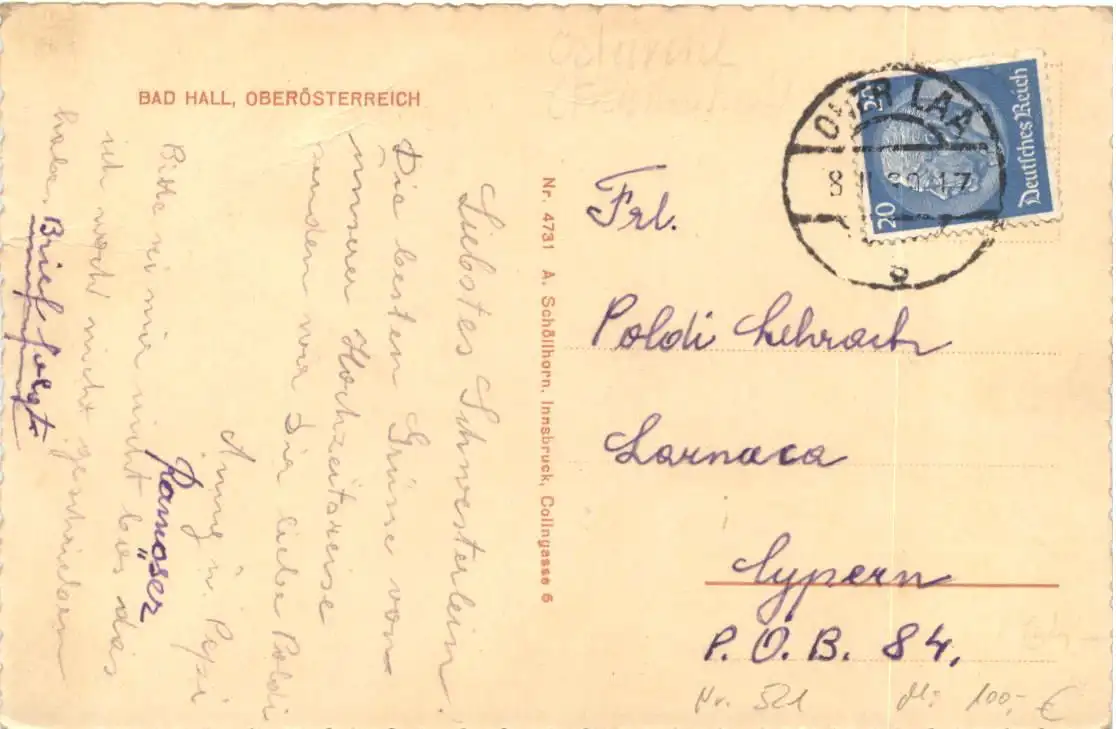 BAD HALL, OBERÖSTERREICH
Liebstes Schwesterlein!
Die besten Grüße von
unserer Hochzeitsreise
senden wir Dir liebe Poldi
Anny u. Pepi
Ramöser
Bitte sei mir nicht bös das
ich noch nicht geschrieben
habe. Brief folgt
Nr. 4731 A. Schöllhorn, Innsbruck, Collngasse 6
LAA
8 17
20
20
Deutsches Reich
Frl.
Poldi
Larnaca
Cypern
P.O.B. 84.
Nr. 521
100,- €